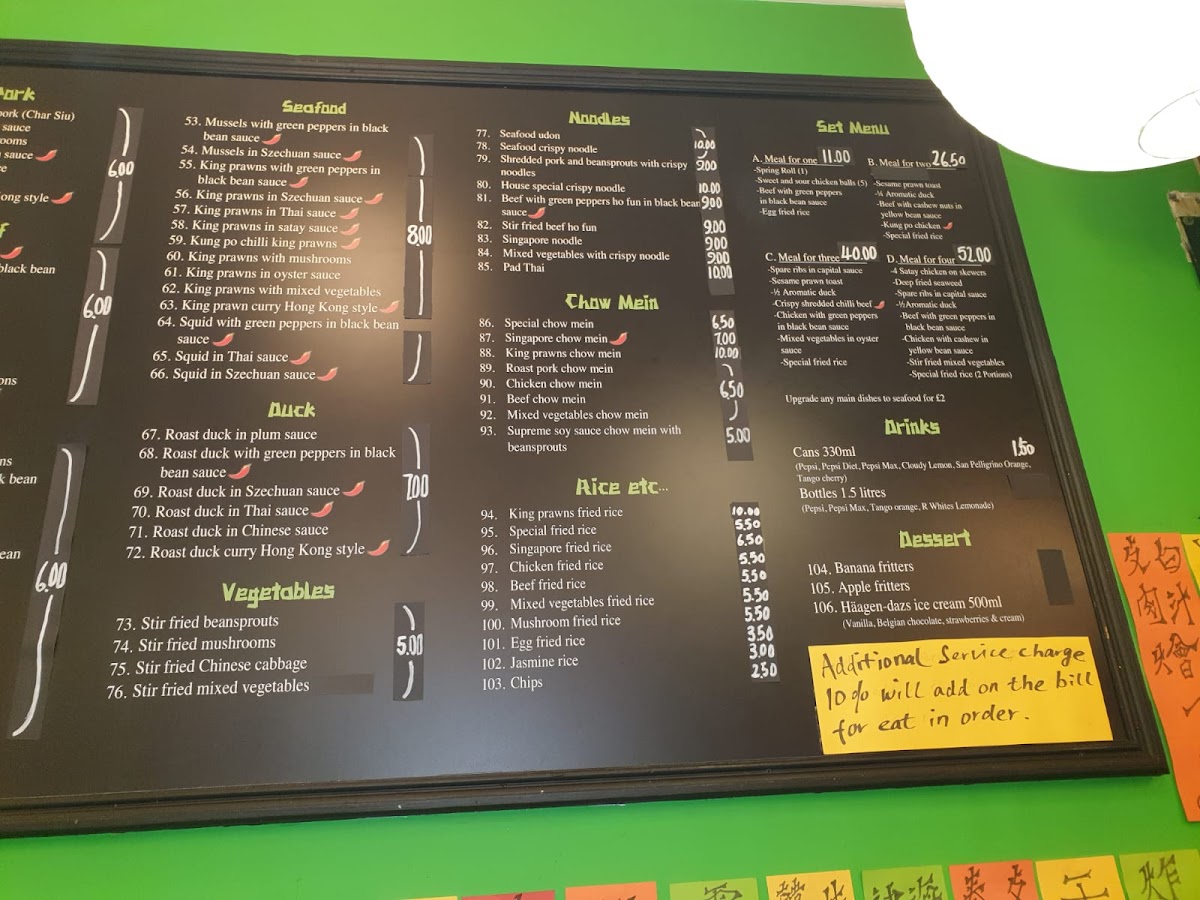 Pork
pork (Char Siu)
sauce
sauce
ong style
6.00
black bean
6.00
k bean
ean
6.00
Seafood
53. Mussels with green peppers in black
bean sauce
54. Mussels in Szechuan sauce
55. King prawns with green peppers in
black bean sauce
56. King prawns in Szechuan sauce
57. King prawns in Thai sauce
58. King prawns in satay sauce
59. Kung po chilli king prawns
60. King prawns with mushrooms
61. King prawns in oyster sauce
62. King prawns with mixed vegetables
63. King prawn curry Hong Kong style
64. Squid with green peppers in black bean
sauce
65. Squid in Thai sauce
66. Squid in Szechuan sauce
8.00
Duck
67. Roast duck in plum sauce
68. Roast duck with green peppers in black
bean sauce
69. Roast duck in Szechuan sauce
70. Roast duck in Thai sauce
71. Roast duck in Chinese sauce
72. Roast duck curry Hong Kong style
7.00
Vegetables
73. Stir fried beansprouts
74. Stir fried mushrooms
75. Stir fried Chinese cabbage
76. Stir fried mixed vegetables
5.00
Noodles
77. Seafood udon
78. Seafood crispy noodle 10.00
79. Shredded pork and beansprouts with crispy 9.00
noodles
80. House special crispy noodle 10.00
81. Beef with green peppers ho fun in black bean 9.00
sauce
82. Stir fried beef ho fun 9.00
83. Singapore noodle 9.00
84. Mixed vegetables with crispy noodle 9.00
85. Pad Thai 10.00
Chow Mein
86. Special chow mein 6.50
87. Singapore chow mein 7.00
88. King prawns chow mein 10.00
89. Roast pork chow mein
90. Chicken chow mein 6.50
91. Beef chow mein
92. Mixed vegetables chow mein
93. Supreme soy sauce chow mein with 5.00
beansprouts
Rice etc...
94. King prawns fried rice 10.00
95. Special fried rice 5.50
96. Singapore fried rice 6.50
97. Chicken fried rice 5.50
98. Beef fried rice 5.50
99. Mixed vegetables fried rice 5.50
100. Mushroom fried rice 5.50
101. Egg fried rice 3.50
102. Jasmine rice 3.00
103. Chips 2.50
Set Menu
A. Meal for one 11.00
-Spring Roll (1)
-Sweet and sour chicken balls (5)
-Beef with green peppers
in black bean sauce
-Egg fried rice
B. Meal for two 26.50
-Sesame prawn toast
-¼ Aromatic duck
-Beef with cashew nuts in
yellow bean sauce
-Kung po chicken
-Special fried rice
C. Meal for three 40.00
-Spare ribs in capital sauce
-Sesame prawn toast
-½ Aromatic duck
-Crispy shredded chilli beef
-Chicken with green peppers
in black bean sauce
-Mixed vegetables in oyster
sauce
-Special fried rice
D. Meal for four 52.00
-4 Satay chicken on skewers
-Deep fried seaweed
-Spare ribs in capital sauce
-½Aromatic duck
-Beef with green peppers in
black bean sauce
-Chicken with cashew in
yellow bean sauce
-Stir fried mixed vegetables
-Special fried rice (2 Portions)
Upgrade any main dishes to seafood for £2
Drinks
Cans 330ml 1.50
(Pepsi, Pepsi Diet, Pepsi Max, Cloudy Lemon, San Pelligrino Orange,
Tango cherry)
Bottles 1.5 litres
(Pepsi, Pepsi Max, Tango orange, R Whites Lemonade)
Dessert
104. Banana fritters
105. Apple fritters
106. Häagen-dazs ice cream 500ml
(Vanilla, Belgian chocolate, strawberries & cream)
Additional Service charge
10% will add on the bill
for eat in order.